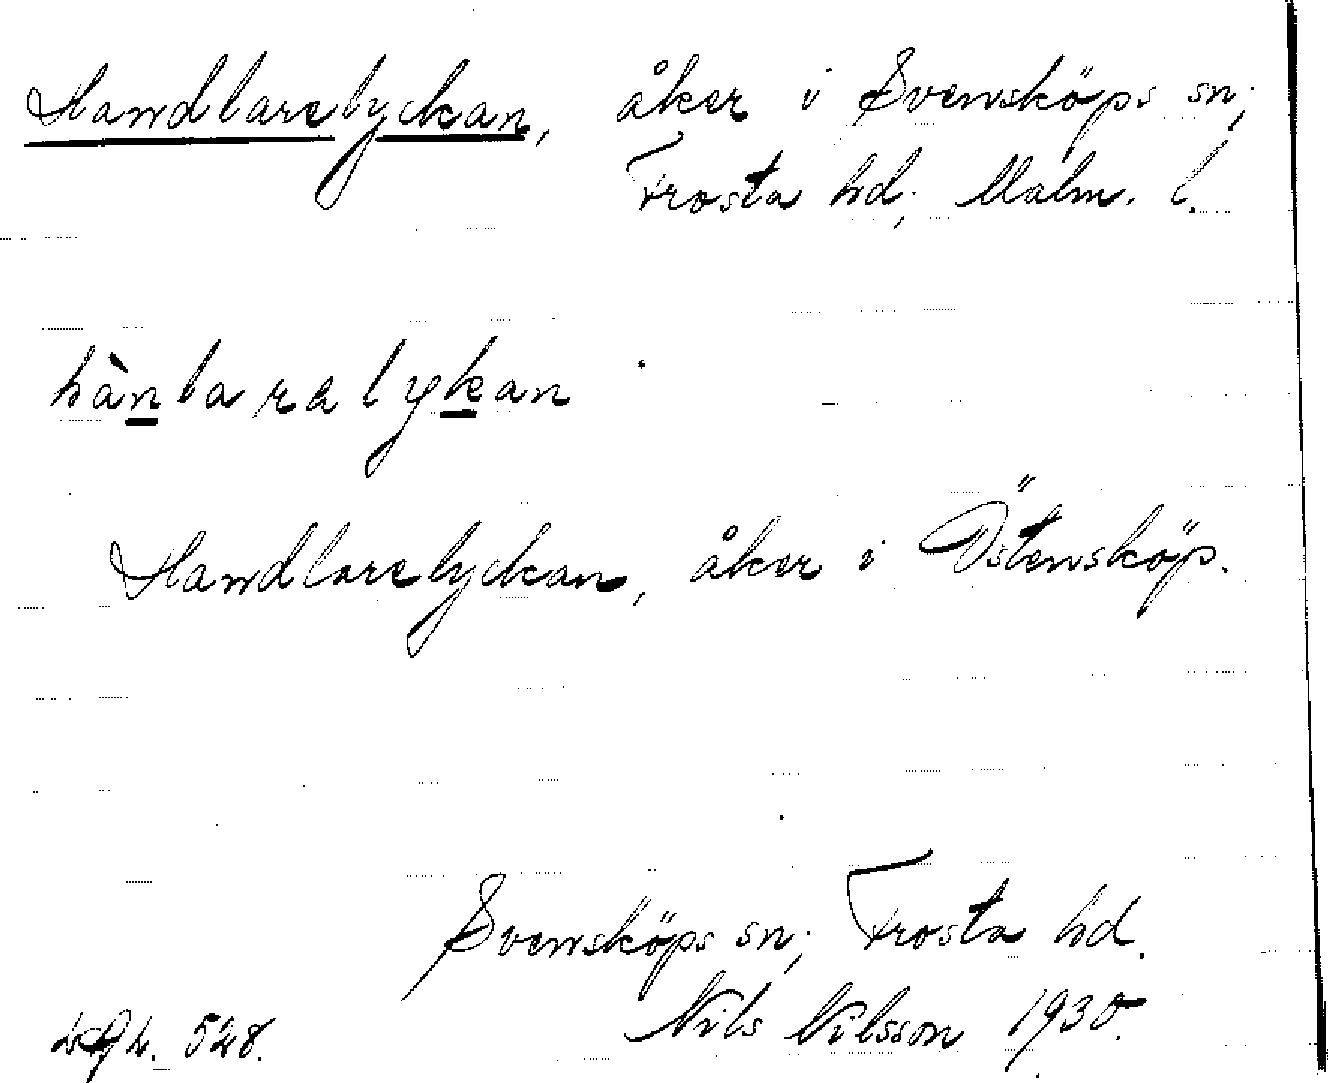 Handlarelyckan, åker i Svensköps sn;
Frosta hd; Malm. l.
hànlaralykan
Handlarelyckan, åker i Östensköp.
Svensköps sn; Frosta hd.
Nils Nilsson 1930.
528.